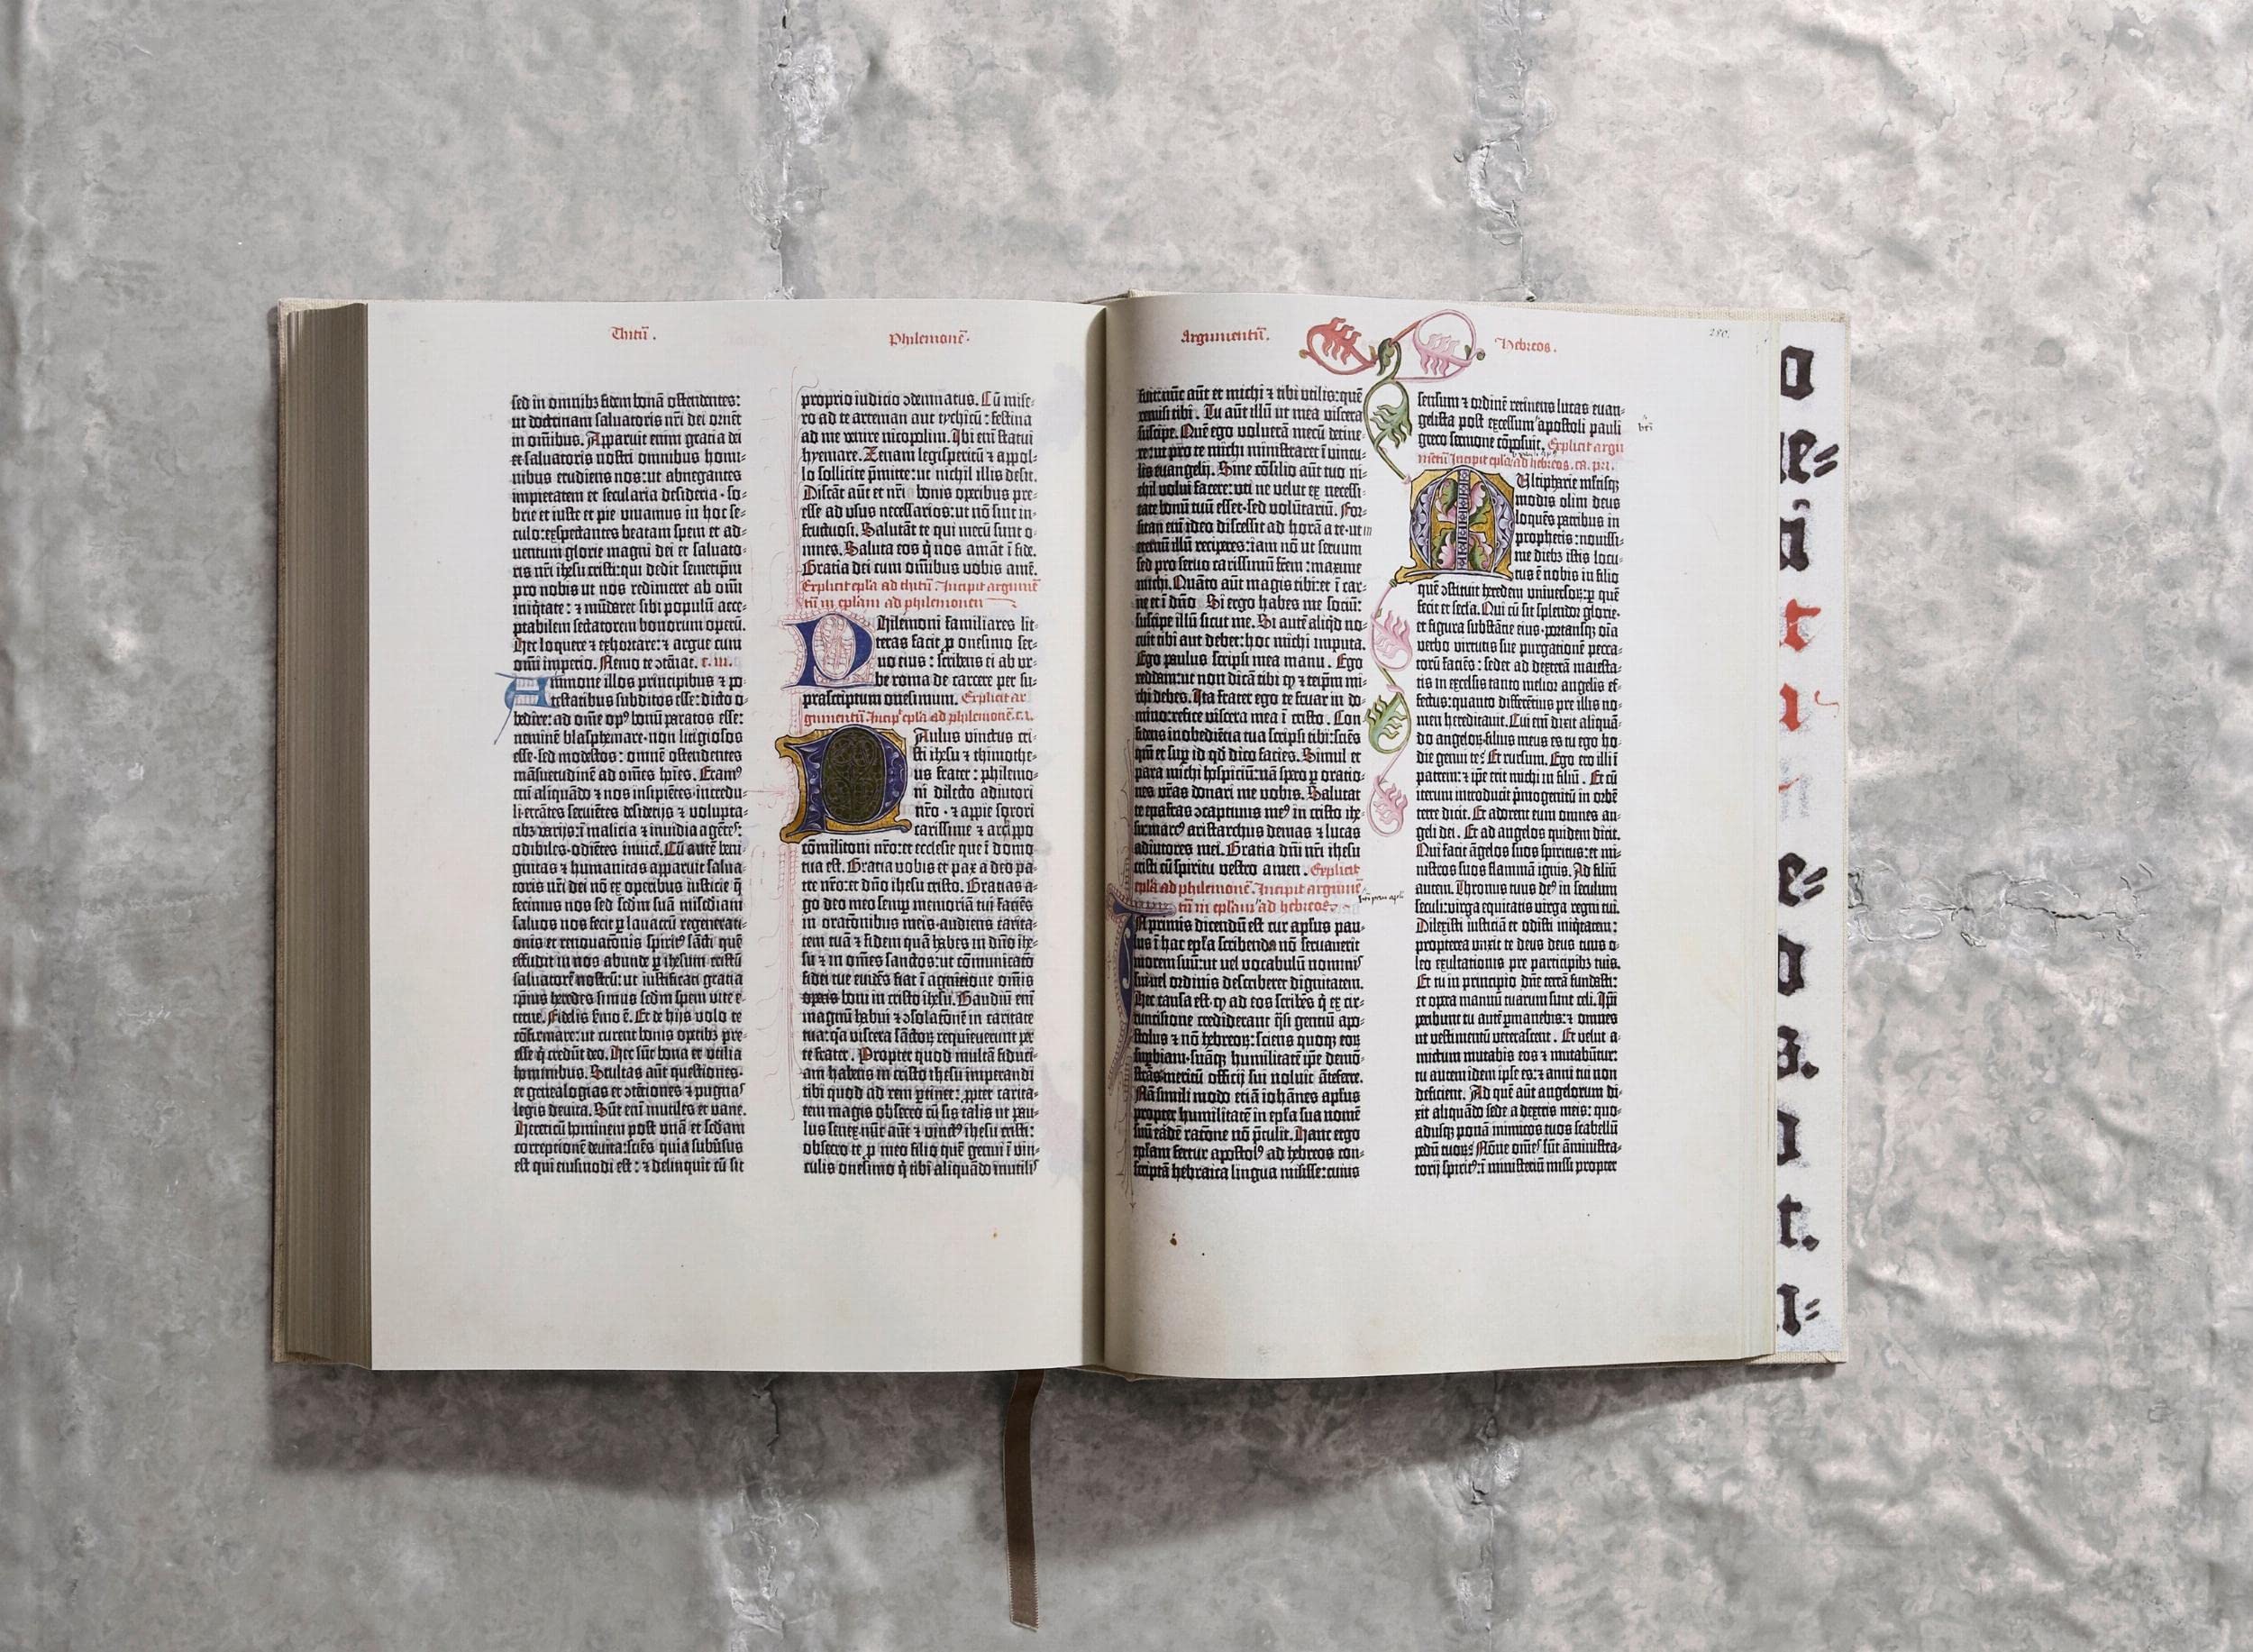 Thitū.
Philemonē.
sed in omnibꝫ fidem bonā ostendentes:
ut doctrinam saluatoris nr̄i dei ornēt
in om̄ibus. Apparuit enim gracia dei
et saluatoris nostri omnibus homi-
nibus erudiens nos: ut abnegantes
impietatem et secularia desideria · so-
brie et iuste et pie viuamus in hoc se-
culo: expectantes beatam spem et ad-
uentum glorie magni dei et saluato-
ris nr̄i ihesu cristi: qui dedit semetipm̄
pro nobis ut nos redimeret ab om̄i
iniq̄tate: ⁊ mūdaret sibi populū acce-
ptabilem sectatorem bonorum operū.
Hec loquere ⁊ exhortare: ⁊ argue cum
om̄i imperio. Nemo te ↄtēnat. c. iii.
Ammone illos principibus ⁊ po-
testatibus subditos esse: dicto o-
bedire: ad om̄e opꝰ bonū paratos esse:
neminē blasphemare · non litigiosos
esse · sed modestos: omnē ostendentes
māsuetudinē ad om̄es hoīes. Eramꝰ
em̄ aliquādo ⁊ nos insipiētes · incredu-
li · errātes · seruiētes desiderijs ⁊ volupta-
tibꝫ varijs: ī malicia ⁊ inuidia agētes:
odibiles · odiētes inuicē. Cū autē beni-
gnitas ⁊ humanitas apparuit salua-
toris nr̄i dei nō ex operibus iusticie q̄
fecimus nos sed sedm̄ suā miām
saluos nos fecit ꝑ lauacrū regenerati-
onis et renouatōnis spiritꝰ sācti quē
effudit in nos abunde ꝑ ihesum cristū
saluatorē nostrū: ut iustificati gratia
ip̄ius heredes simus sedm̄ spem vite e-
terne. Fidelis sermo ē. Et de hijs volo te
cōfirmare: ut curent bonis operibꝫ pre-
esse q̄ credūt deo. Hec sūt bona et vtilia
hominibus. Stultas aūt questiones ·
et genealogias et ↄtētiones ⁊ pugnas
legis deuita. Sūt em̄ inutiles et vane.
Hereticū hominem post vnā et scd̄am
correptionē deuita: sciēs quia subūsus
est qui eiusmodi est: ⁊ delinquit cū sit
proprio iudicio ↄdemnatus. Cū mise-
ro ad te arteman aut tychicū: festina
ad me venire nicopolim. Ibi em̄ statui
hyemare. Zenam legisperitū ⁊ appol-
lo sollicite p̄mitte: ut nichil illis desit.
Discāt aūt et nr̄i bonis operibus pre-
esse ad vsus necessarios: ut nō sint in-
fructuosi. Salutāt te qui mecū sunt o-
mnes. Saluta eos q̄ nos amāt ī fide.
Gratia dei cum om̄ibus vobis amē.
Explicit ep̄la ad thitū. Incipit argumē
tū in ep̄lam ad philemonem
Philemoni familiares lit-
teras facit ꝑ onesimo ser-
uo eius: scribens ei ab vr-
be roma de carcere per su-
prascriptum onesimum. Explicit ar
gumentū. Incipit ep̄la ad philemonē. c. i.
Paulus vinctus cri-
sti ihesu ⁊ thimothe-
us frater: philemo-
ni dilecto adiutori
nr̄o · ⁊ appie sorori
carissime ⁊ archippo
cōmilitoni nr̄o: et ecclesie que ī domo
tua est. Gratia vobis et pax a deo pa-
tre nr̄o: et dn̄o ihesu cristo. Gratias a-
go deo meo semꝑ memoriā tui faciēs
in orationibus meis · audiens carita-
tem tuā ⁊ fidem quā habes in dn̄o ihe-
su ⁊ in om̄es sanctos: ut cōmunicatō
fidei tue euidēs fiat ī agnitione om̄is
operis boni in cristo ihesu. Gaudiū em̄
magnū habui ⁊ ↄsolatōnē in caritate
tua: q̄a viscera sāctoꝝ requieuerunt per
te frater. Propter quod multā fiduci-
am habens in cristo ihesu imperandi
tibi quod ad rem ꝑtinet: ꝓpter carita-
tem magis obsecro cū sis talis ut pau-
lus senex · nūc aūt ⁊ vinctꝰ ihesu cristi:
obsecro te ꝓ meo filio quē genui ī vin-
culis onesimo q̄ tibi aliquādo inutilis
Argumentū.
Hebreos.
280.
fuit: nūc aūt et michi ⁊ tibi vtilis: quē
remisi tibi. Tu aūt illū ut mea viscera
suscipe. Quē ego voluerā mecū detine-
re: ut pro te michi ministraret ī vincu-
lis euangelij. Sine cōsilio aūt tuo ni-
chil volui facere: vti ne velut ex necessi-
tate bonū tuū esset · sed volūtariū. For-
sitan em̄ ideo discessit ad horā a te · ut in
eternū illū reciperes: iam nō ut seruum
sed pro seruo carissimū frēm: maxime
michi. Quāto aūt magis tibi: et ī car-
ne et ī dn̄o. Si ergo habes me sociū:
suscipe illū sicut me. Si autē aliq̄d no-
cuit tibi aut debet: hoc michi imputa.
Ego paulus scripsi mea manu. Ego
reddam: ut non dicā tibi ꝙ et teipm̄ mi-
chi debes. Ita frater ego te fruar in do-
mino: refice viscera mea ī cristo. Con-
fidens in obediētia tua scripsi tibi: sciēs
qm̄ et suꝑ id qd̄ dico facies. Simul et
para michi hospiciū: nā spero ꝑ oratio-
nes vr̄as donari me vobis. Salutat
te epafras ↄcaptiuus meꝰ in cristo ihe-
su: marcꝰ aristarchus demas ⁊ lucas
adiutores mei. Gratia dn̄i nr̄i ihesu
cristi cū spiritu vestro amen. Explicit
ep̄la ad philemonē. Incipit argumē
tū in ep̄lam ad hebreos.
In primis dicendū est cur apl̄us pau-
lus ī hac ep̄la scribenda nō seruauerit
morem suū: ut vel vocabulū nominis
sui vel ordinis describeret dignitatem.
Hec causa est · ꝙ ad eos scribēs q̄ ex cir-
cumcisione crediderant q̄si gentiū apo-
stolus ⁊ nō hebreoꝝ: sciens quoqꝫ eoꝝ
superbiam · suāqꝫ humilitatē ip̄e demō-
strās · meritū officij sui noluit āteferre.
Nā simili modo etiā iohānes apl̄us
propter humilitatē in ep̄la sua nomē
suū eadē ratōne nō p̄tulit. Hanc ergo
ep̄lam fertur apostolꝰ ad hebreos con-
scriptā hebraica lingua misisse: cuius
sensum ⁊ ordinē retinens lucas euan-
gelista post excessum apostoli pauli
greco sermone cōposuit. Explicit argu
mētū Incipit ep̄la ad hebreos. ca. pri.
Multipharie mltisqꝫ
modis olim deus
loquēs patribus in
prophetis: nouissi-
me diebꝫ istis locu-
tus ē nobis in filio
quē ↄstituit heredem vniuersoꝝ: ꝑ quē
fecit et secl̄a. Qui cū sit splendor glorie ·
et figura substācie eius · portansqꝫ oīa
verbo virtutis sue purgationē pecca-
torū faciēs: sedet ad dexterā maiesta-
tis in excelsis tanto melior angelis ef-
fectus: quanto differētius pre illis no-
men hereditauit. Cui em̄ dixit aliquā-
do angeloꝝ filius meus es tu ego ho-
die genui te? Et rursum. Ego ero illi ī
patrem: ⁊ ip̄e erit michi in filiū. Et cū
iterum introducit p̄mogenitū in orbē
terre dicit. Et adorent eum omnes an-
geli dei. Et ad angelos quidem dicit.
Qui facit āgelos suos spiritus: et mi-
nistros suos flammā ignis. Ad filiū
autem. Thronus tuus deꝰ in seculum
seculi: virga equitatis virga regni tui.
Dilexisti iusticiā et odisti iniq̄tatem:
propterea vnxit te deus deus tuus o-
leo exultationis pre participibꝫ tuis.
Et tu in principio dn̄e terrā fundasti:
et opera manuū tuarum sunt celi. Ip̄i
peribunt tu autē ꝑmanebis: ⁊ omnes
ut vestimentū veterascent. Et velut a-
mictum mutabis eos ⁊ mutabūtur:
tu autem idem ipse es: ⁊ anni tui non
deficient. Ad quē aūt angelorum di-
xit aliquādo sede a dextris meis: quo-
adusqꝫ ponā inimicos tuos scabellū
pedū tuoꝝ? Nōne om̄es sūt āministra-
torij spiritꝰ: ī ministeriū missi propter
o
e=
i
r
e=
o
s.
o
t.